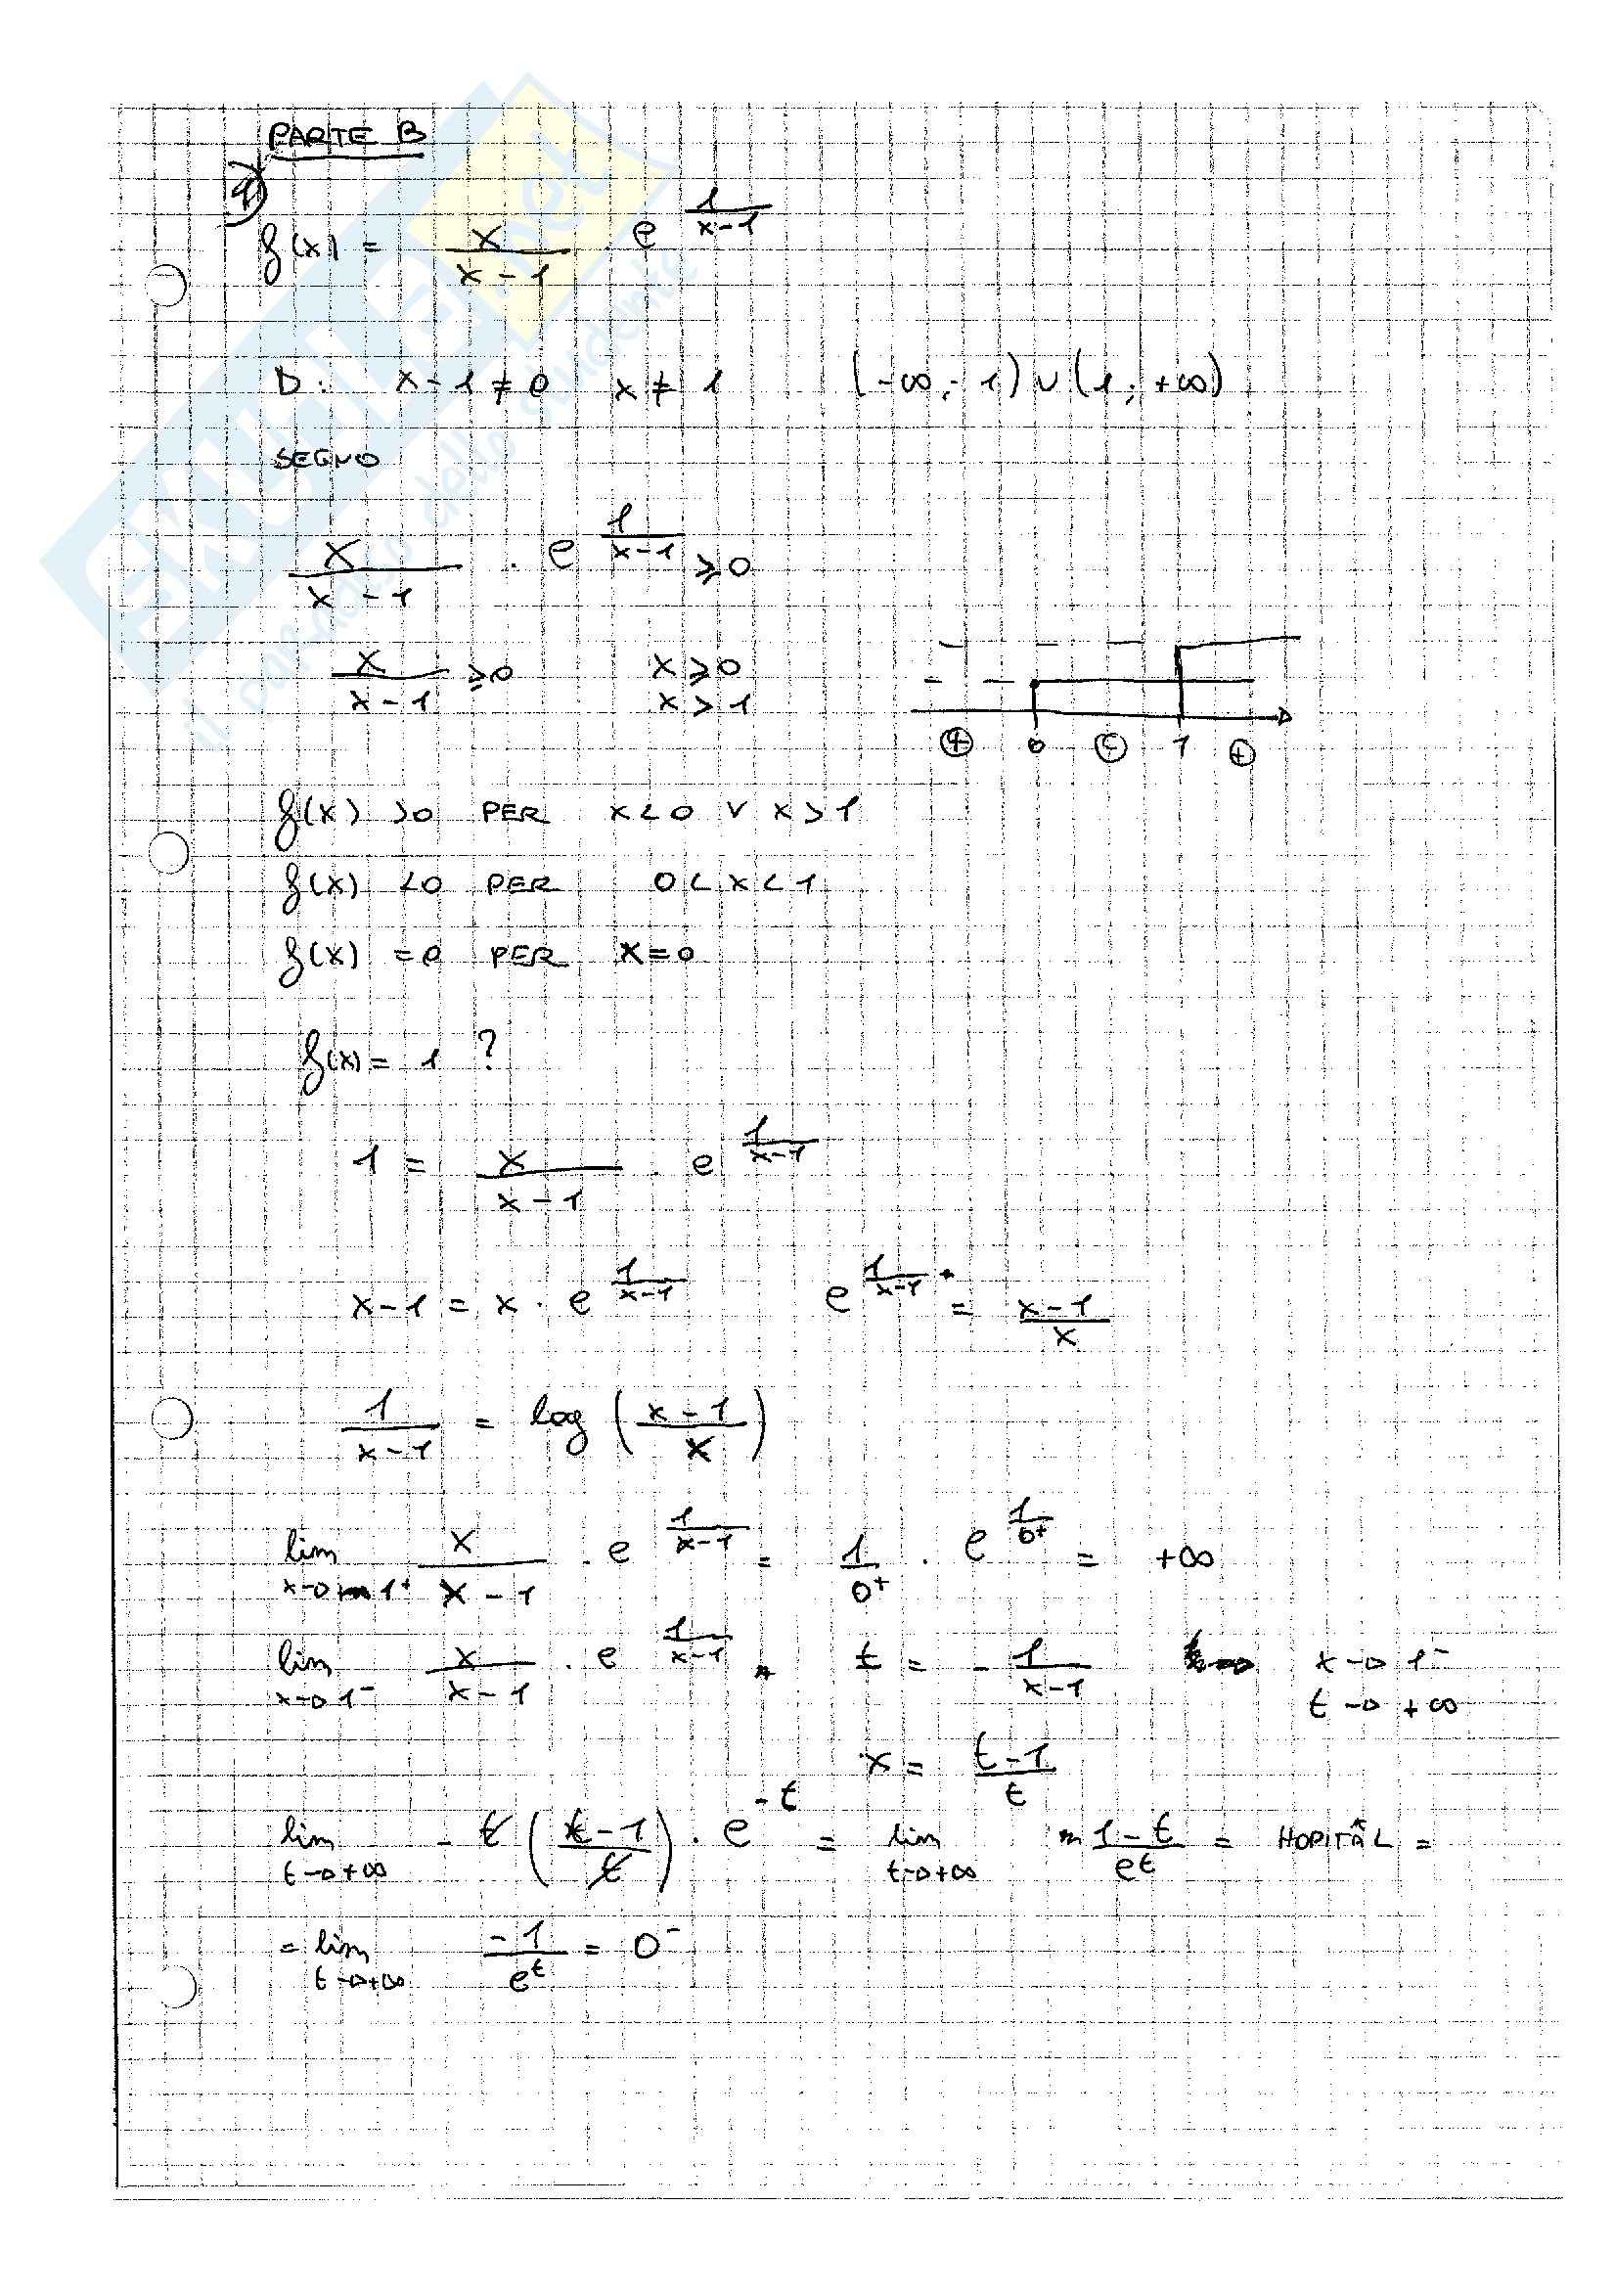 PARTE B
f(x) = x/(x-1) · e^(1/(x-1))
D: x-1≠0 x≠1 (-∞; 1) ∪ (1; +∞)
SEGNO
x/(x-1) · e^(1/(x-1)) ⩾ 0
x/(x-1) ⩾ 0 x⩾0
x>1
+ 0 - 1 +
f(x) >0 PER x<0 ∨ x>1
f(x) <0 PER 0<x<1
f(x) =0 PER x=0
f(x) = 1 ?
1 = x/(x-1) · e^(1/(x-1))
x-1 = x · e^(1/(x-1)) e^(1/(x-1)) = (x-1)/x
1/(x-1) = log ((x-1)/x)
lim x→1⁺ x/(x-1) · e^(1/(x-1)) = 1/0⁺ · e^(1/0⁺) = +∞
lim x→1⁻ x/(x-1) · e^(1/(x-1)) t = -1/(x-1) x→1⁻
t→+∞
x = (t-1)/t
lim t→+∞ -t ((t-1)/t) · e^(-t) = lim t→+∞ (1-t)/e^t = HOPITÂL =
= lim t→+∞ -1/e^t = 0⁻